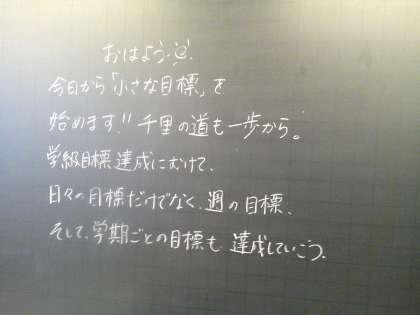 おはよう
今日から「小さな目標」を
始めます!!千里の道も一歩から。
学級目標達成にむけて、
日々の目標だけでなく、週の目標、
そして、学期ごとの目標も達成していこう。